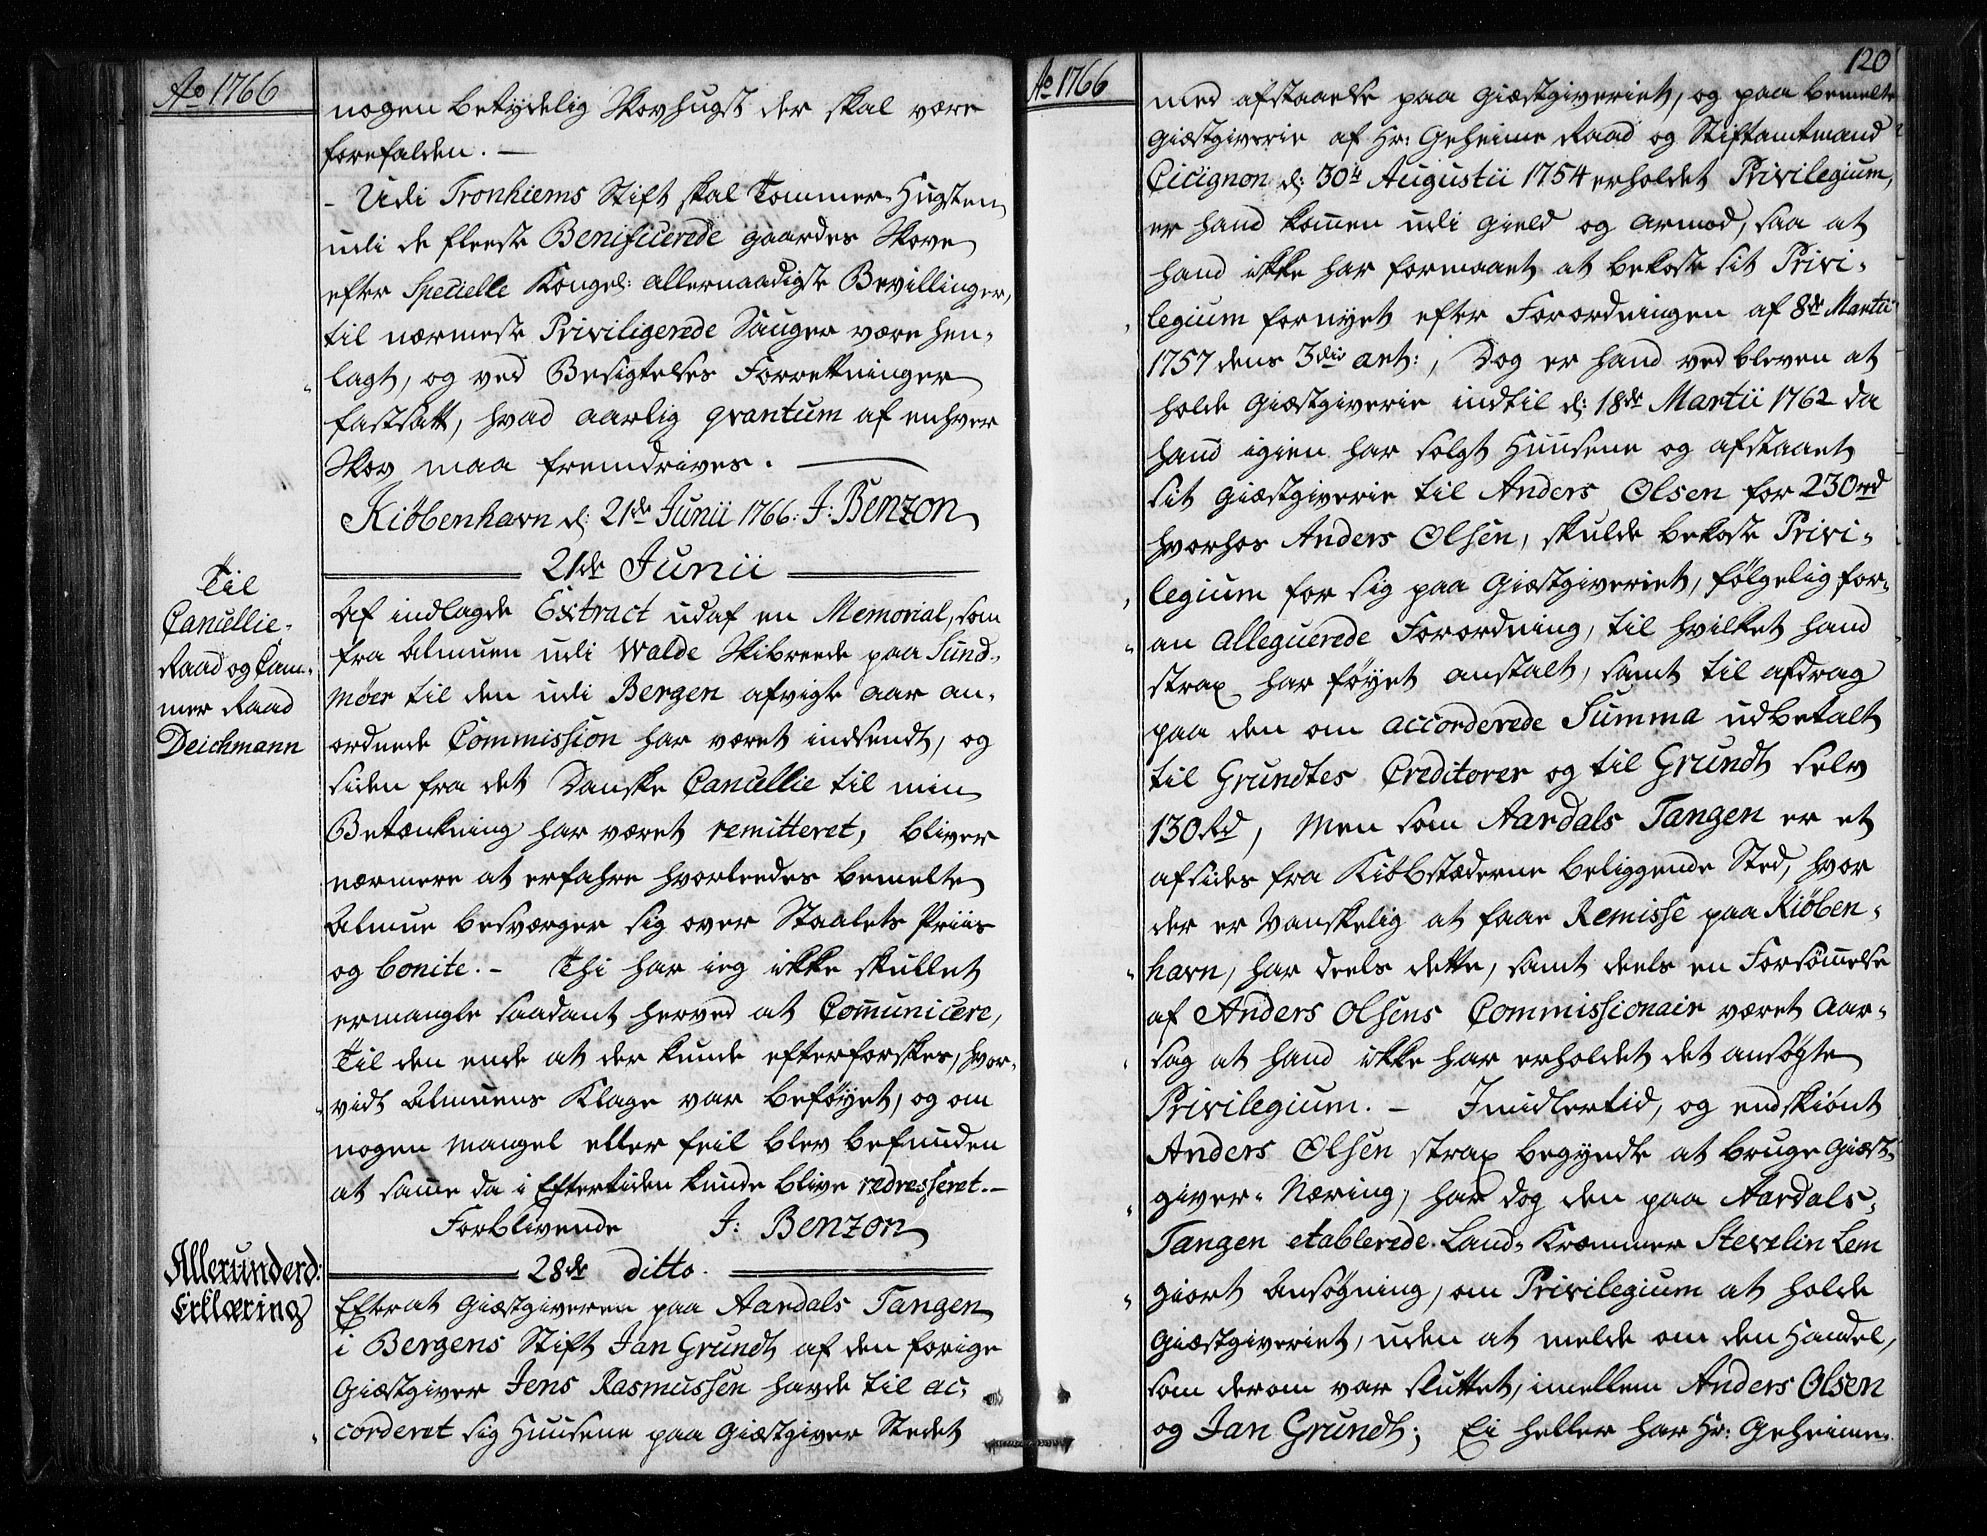 Ao 1766
nogen betydelig Skovhugst der skal være
forefalden. —
- Udi Tronhiems Stift skal Tømmer-Hugsten
udi de fleeste Benificerede gaardes Skove
efter Specielle Kongel: allernaadigste Bevillinger,
til nærmeste Priviligerede Sauger være hen-
lagt, og ved Besigtelses Forretninger
fastsatt, hvad aarlig qvantum af enhver
Skov maa fremdrives. —
Kiøbenhavn d: 21de Junii 1766: J: Benzon
21de Junii
Til
Cancellie-
Raad og Cam-
mer Raad
Deichmann
Af indlagde Extract udaf en Memorial, som
fra Almuen udi Walde Skibreede paa Sund-
møer til den udi Bergen afvigte aar an-
ordnede Commission har været indsendt, og
siden fra det Danske Cancellie til min
Betænkning har været remitteret, bliver
nærmere at erfahre hvorleedes bemelte
Almue besværger sig over Staalets Priis
og bonite. - Thi har ieg ikke skullet
ermangle saadant herved at Com̄unicere,
Til den ende at der kunde efterforskes, hvor-
vidt Almuens Klage var beføyet, og om
nogen Mangel eller feil blev befunden
at sam̄e da i Eftertiden kunde blive redresseret. -
Forblivende J: Benzon
28de ditto.
Allerunderd:
Erklæring
Efterat Giæstgiveren paa Aardals Tangen
i Bergens Stift Jan Grundt af den forige
Giæstgiver Jens Rasmussen havde til ac-
corderet sig Huusene paa Giæstgiver Stedet
Ao 1766
120
med afstaaelse paa Giæstgiveriet, og paa bemelte
Giæstgiverie af Hr: Geheime Raad og Stiftamtmand
Cicignon d: 30te Augustii 1754 erholdet Privilegium,
er hand kom̄en udi gield og armod, saa at
hand ikke har formaaet at bekoste sit Privi-
legium fornyet efter Forordningen af 8de Martii
1757 dens 3die art:, Dog er hand ved bleven at
holde Giæstgiverie indtil d: 18de Martii 1762 da
hand igien har solgt Huusene og afstaaet
sit Giæstgiverie til Anders Olsen for 230rd
hvorhos Anders Olsen, skulde bekoste Privi-
legium for sig paa Giæstgiveriet, følgelig for-
an alleguerede Forordning, til hvilket hand
strax har føyet anstalt, samt til afdrag
paa den om accorderede Summa udbetalt
til Grundtes Creditorer og til Grundt selv
130 Rd, Men som Aardals Tangen er et
afsides fra Kiøbstæderne beliggende Sted, hvor
der er vanskelig at faae Remisse paa Kiøben-
havn, har deels dette, samt deels en Forsøm̄else
af Anders Olsens Commissionair været Aar-
sag at hand ikke har erholdet det ansøgte
Privilegium. - Imidlertid, og endskiønt
Anders Olsen strax begyndte at bruge Giæst-
giver-Næring, har dog den paa Aardals-
Tangen etablerede Land-Kræmmer Stevelin Lem
giort Ansøgning, om Privilegium at holde
Giæstgiveriet, uden at melde om den Handel,
som derom var sluttet, imellem Anders Olsen
og Jan Grundt; Ei heller har Hr: Geheime-